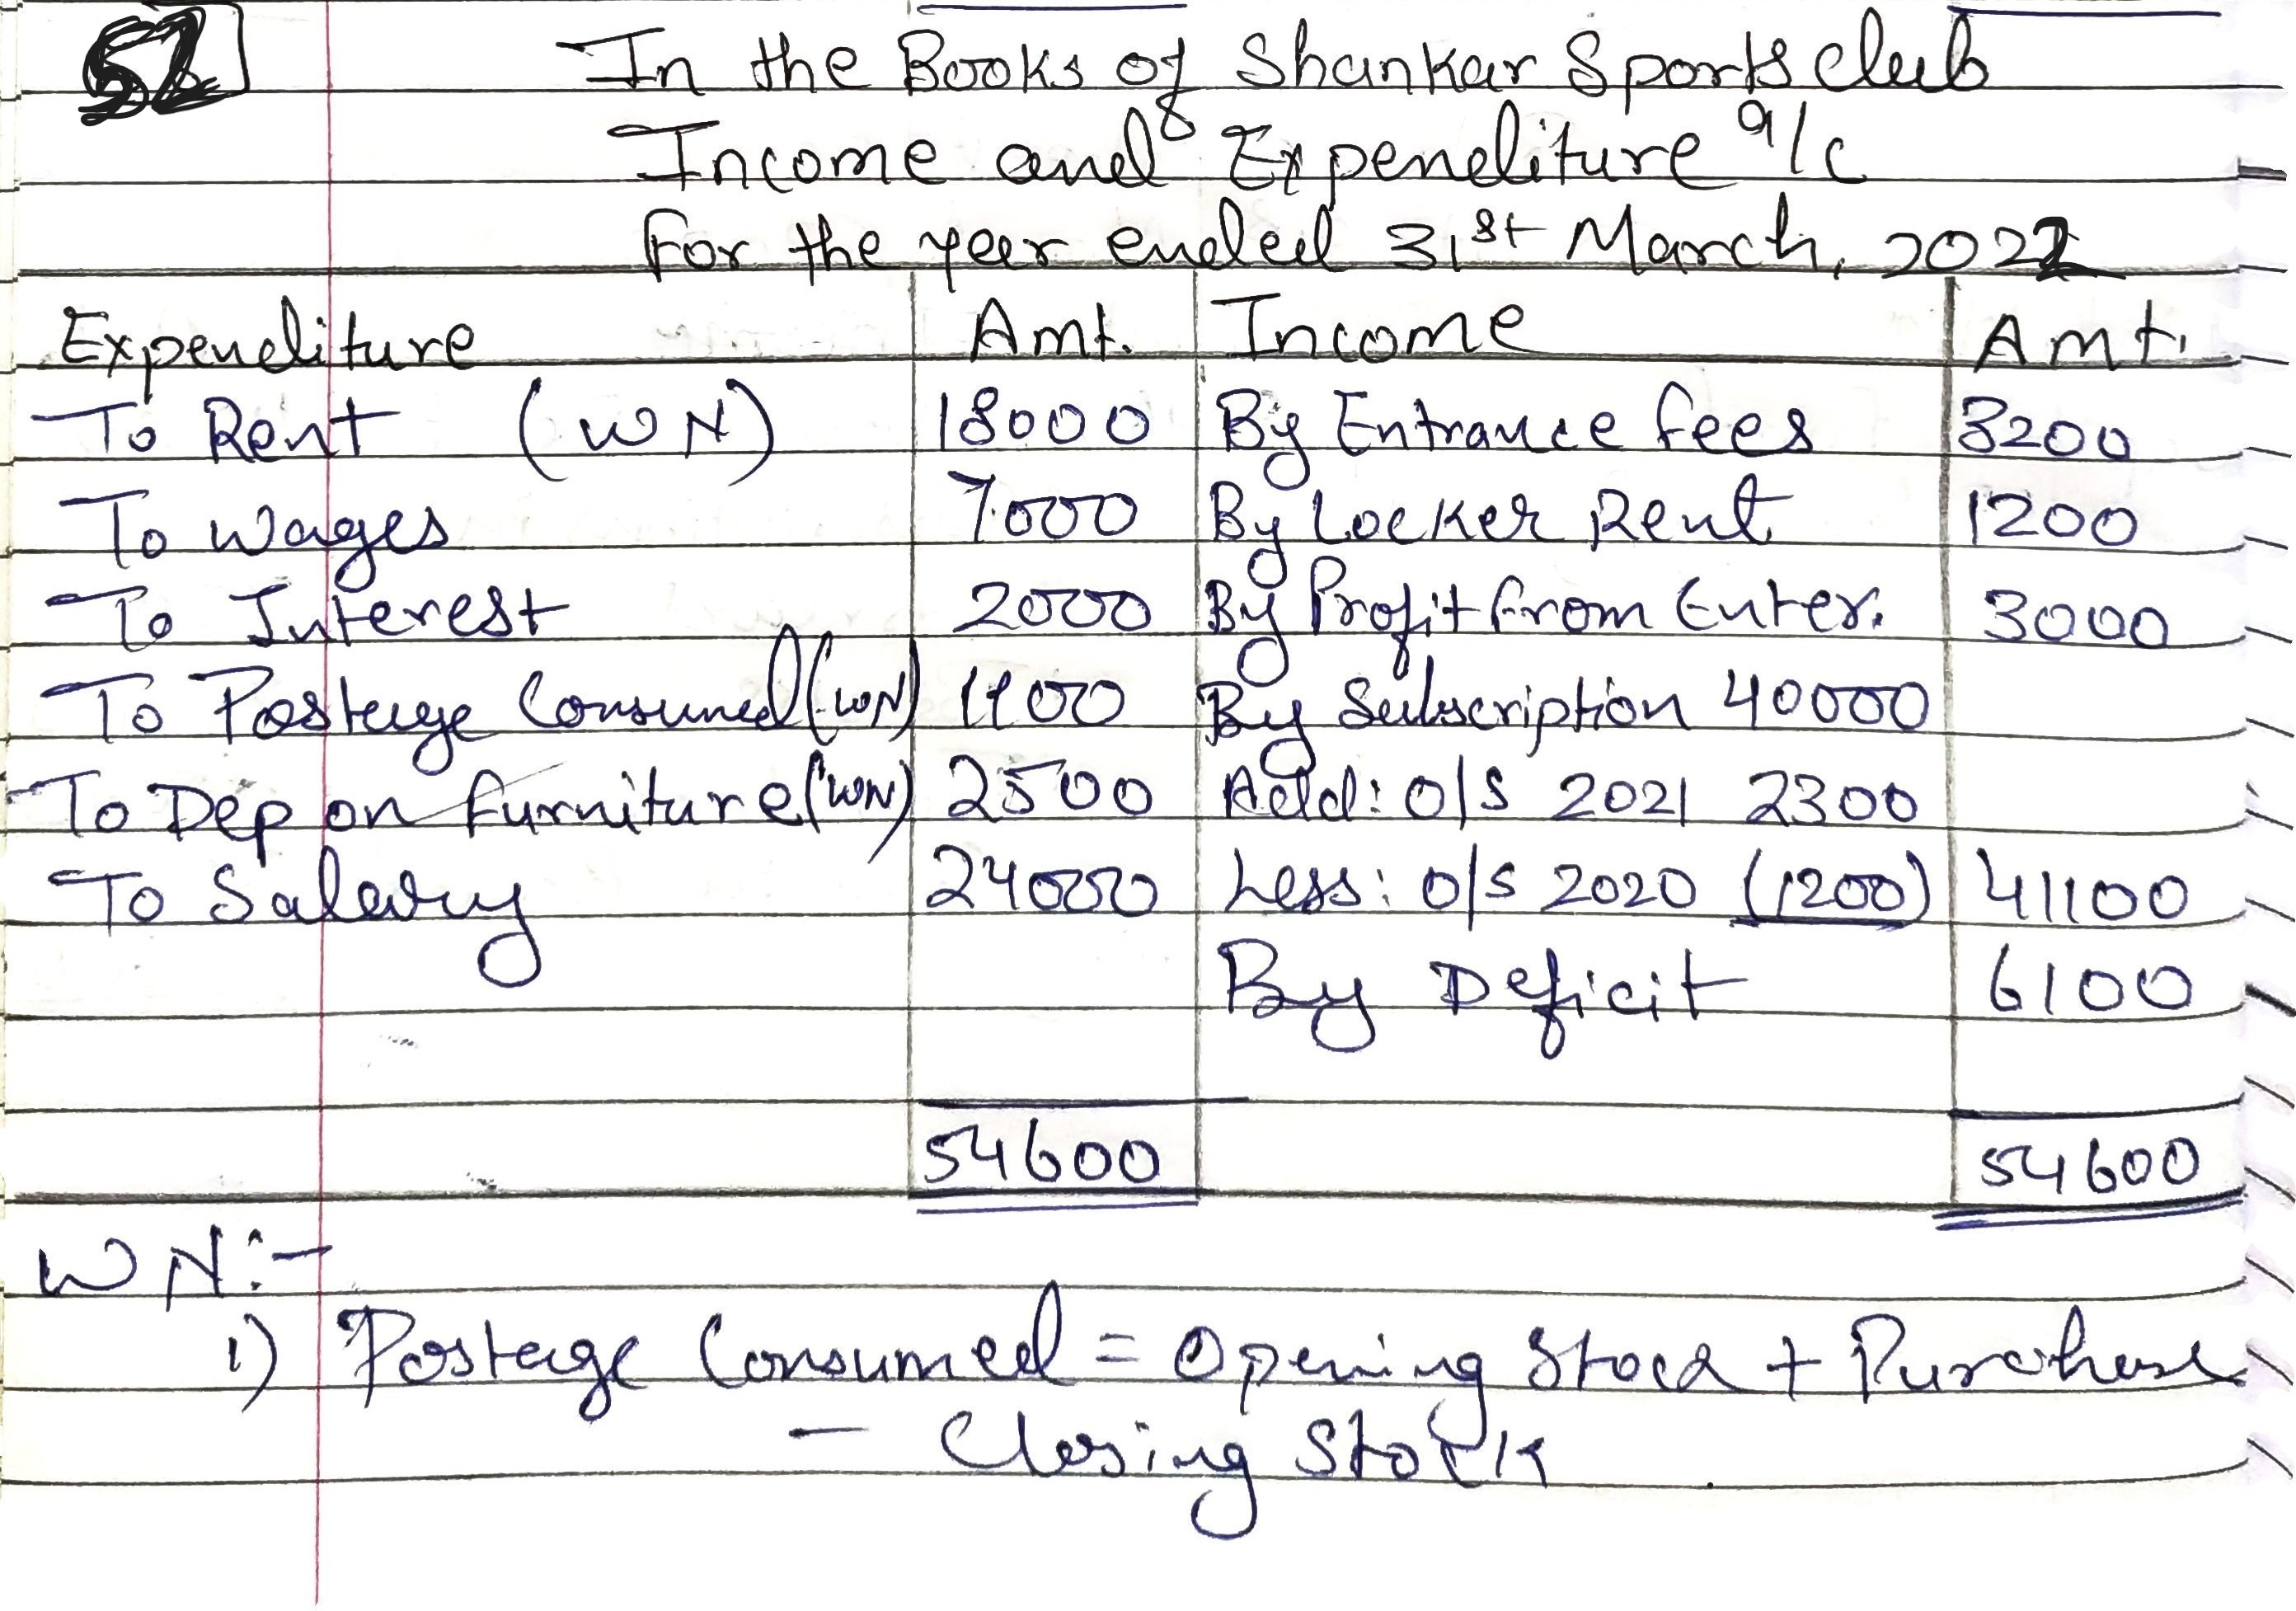 52
In the Books of Shankar Sports club
Income and Expenditure a/c
for the year ended 31st March, 2022
Expenditure Amt. Income Amt.
To Rent (WN) 18000 By Entrance fees 3200
To Wages 7000 By Locker Rent 1200
To Interest 2000 By Profit from Enter. 3000
To Postage Consumed (WN) 1100 By Subscription 40000
To Dep on furniture (WN) 2500 Add: O/S 2021 2300
To Salary 24000 Less: O/S 2020 (1200) 41100
By Deficit 6100
54600 54600
WN:-
1) Postage Consumed = Opening Stock + Purchase
- Closing Stock